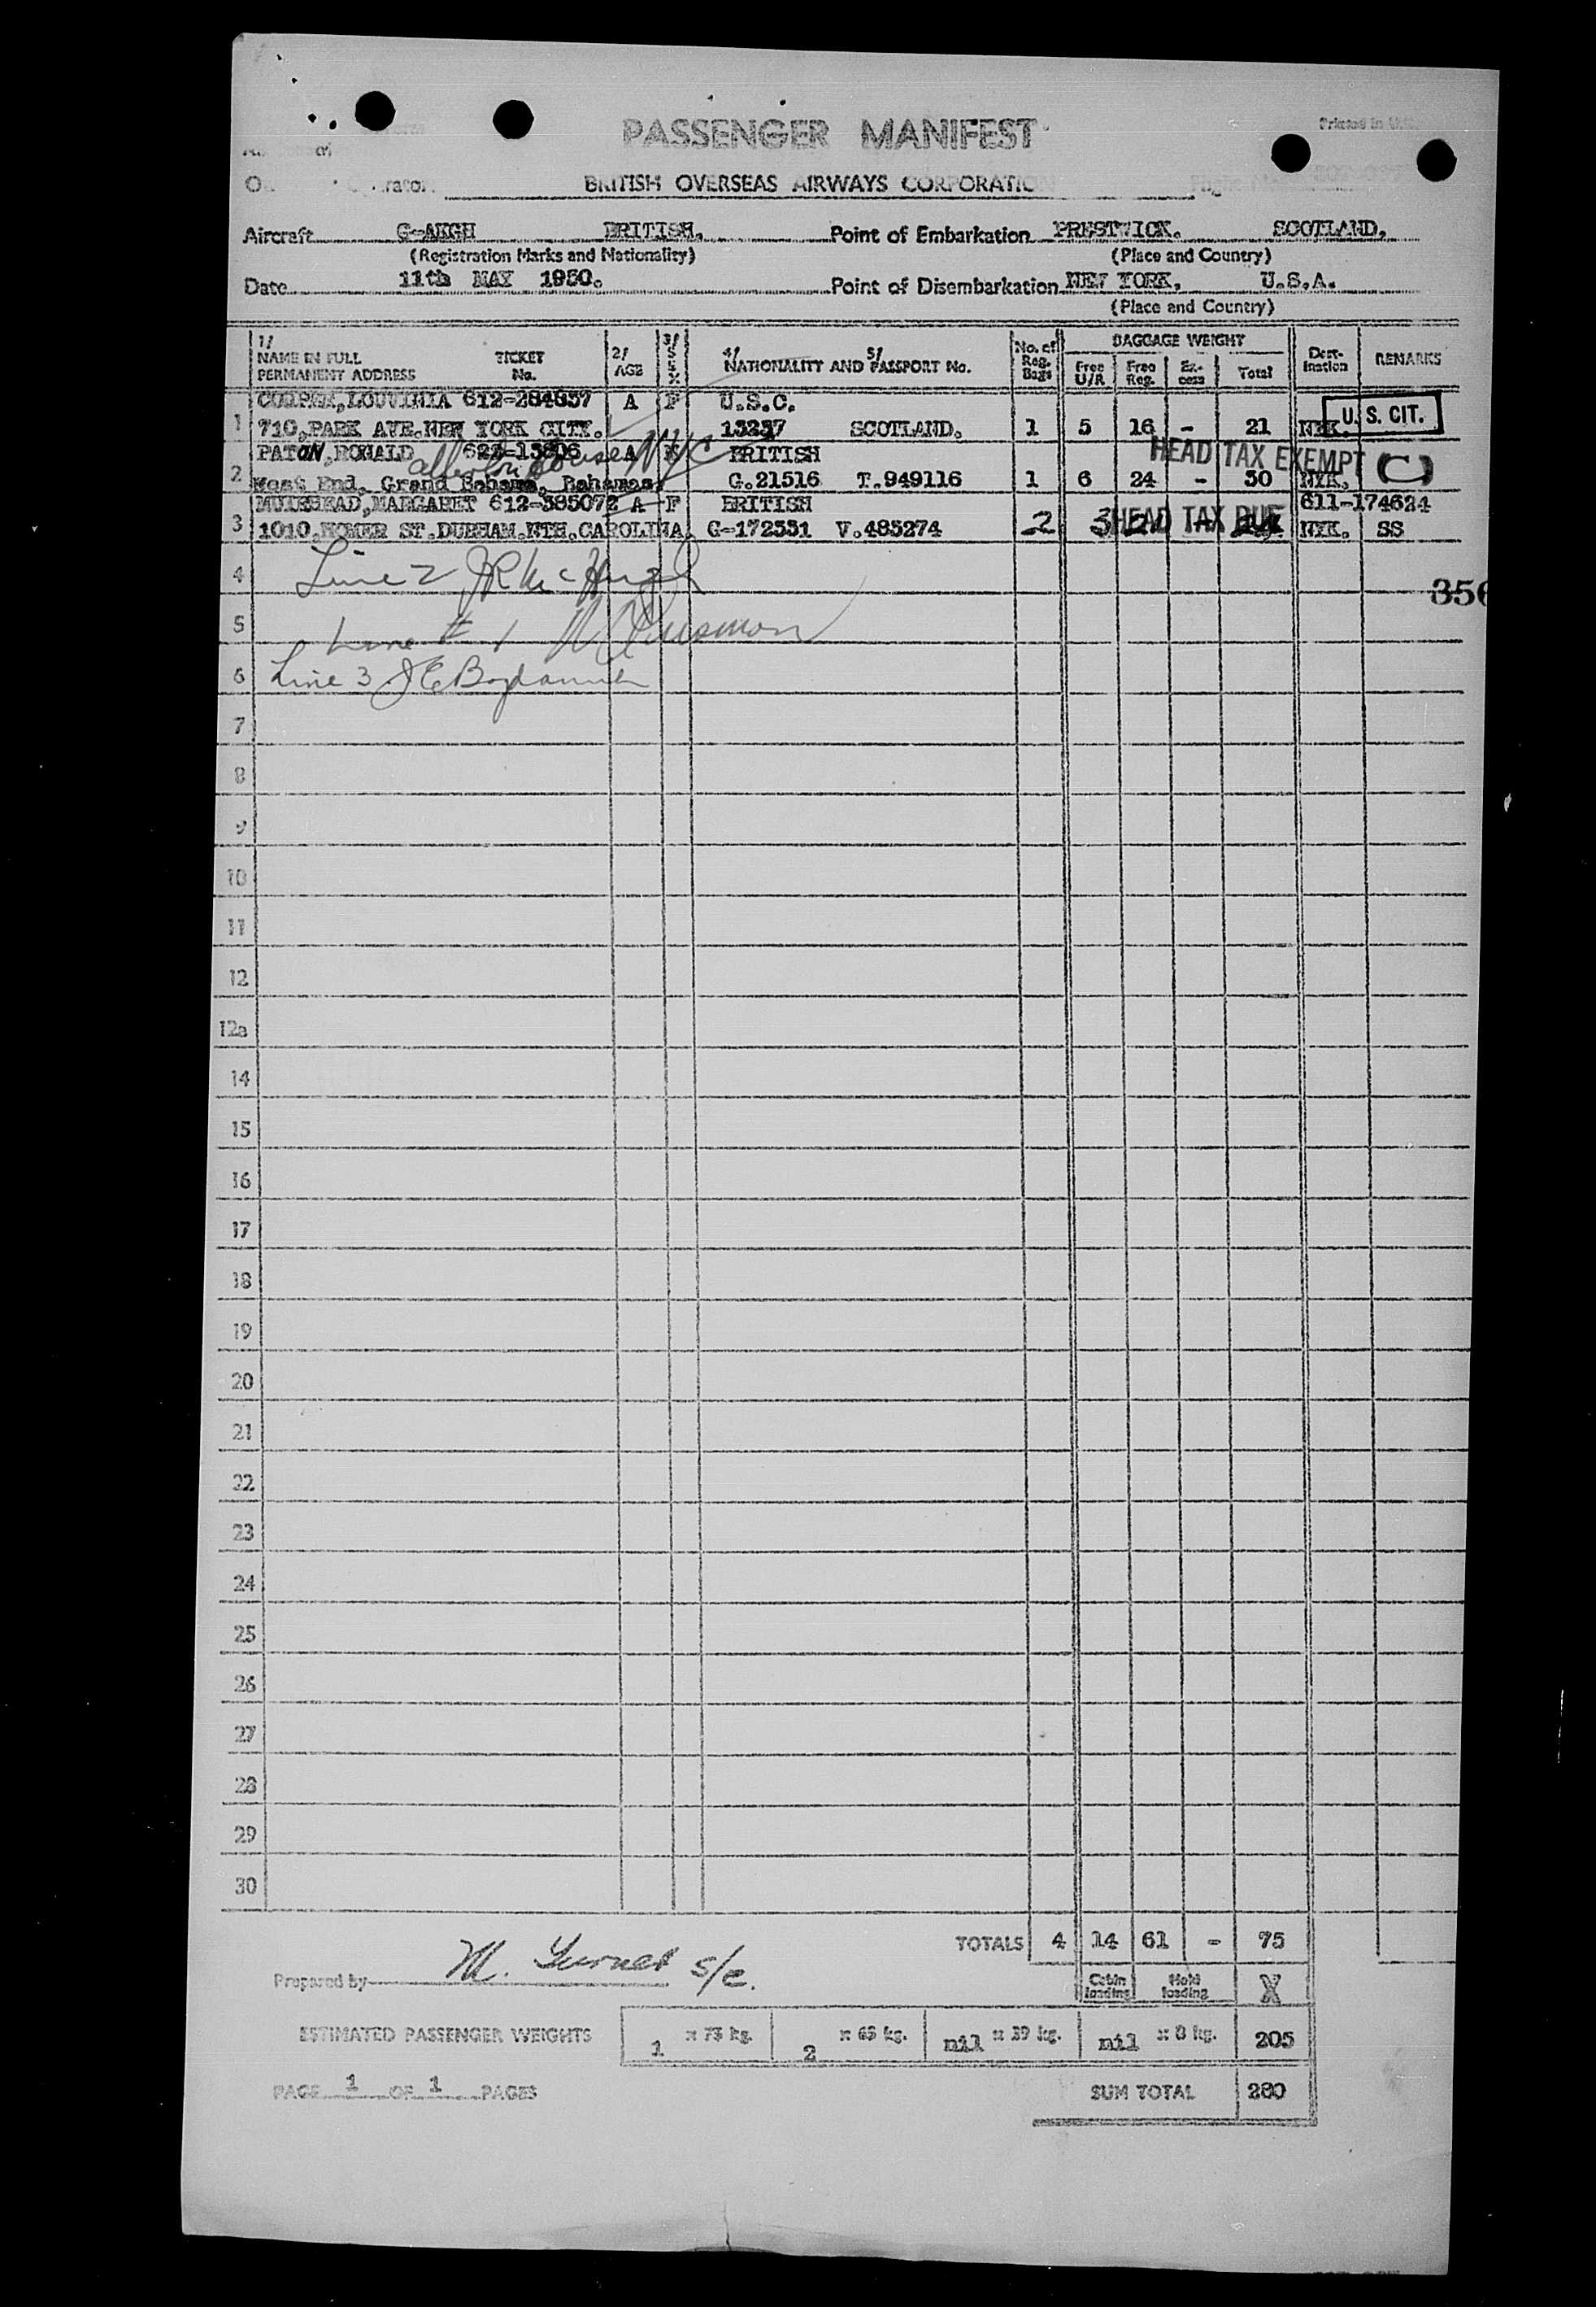 PASSENGER MANIFEST
Printed in
BRITISH OVERSEAS AIRWAYS CORPORATION
Aircraft G-AKGH BRITISH. Point of Embarkation PRESTWICK. SCOTLAND.
(Registration Marks and Nationality) (Place and Country)
Date 11th MAY 1950. Point of Disembarkation NEW YORK. U.S.A.
(Place and Country)
1/ NAME IN FULL PERMANENT ADDRESS TICKET No. 2/ AGE 3/ SEX 4/ NATIONALITY AND 5/ PASSPORT No. No. of Reg. Bags BAGGAGE WEIGHT Free U/R Free Reg. Ex-cess Total Dest-ination REMARKS
LOUVINIA 612-284637 A F U.S.C.
1 710, PARK AVE. NEW YORK CITY. 13237 SCOTLAND. 1 5 16 - 21 NYK. U. S. CIT.
PATON, RONALD A BRITISH HEAD TAX EXEMPT (C)
Allerton House NYC
2 West End, Grand Bahama, Bahamas. G.21516 T.949116 1 6 24 - 30 NYK.
MUIRHEAD, MARGARET 612-385072 A F BRITISH 611-174624
3 1010, HOMER ST. DURHAM. NTH. CAROLINA. G-172531 V.485274 2 3 HEAD TAX DUE NYK. SS
4 Line 2 J R McHugh
356
5 Line # 1
6 Line 3 J E
7
8
9
10
11
12
12a
14
15
16
17
18
19
20
21
22
23
24
25
26
27
28
29
30
TOTALS 4 14 61 - 75
Prepared by M. Turner s/e.
Cabin loading Hold loading X
ESTIMATED PASSENGER WEIGHTS 1 x 75 kg. 2 x 65 kg. nil x 39 kg. nil x 8 kg. 205
PAGE 1 OF 1 PAGES SUM TOTAL 280